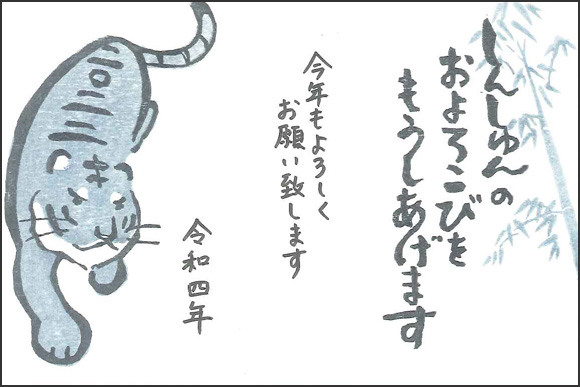 しんしゅんの
およろこびを
もうしあげます
今年もよろしく
お願い致します
令和四年